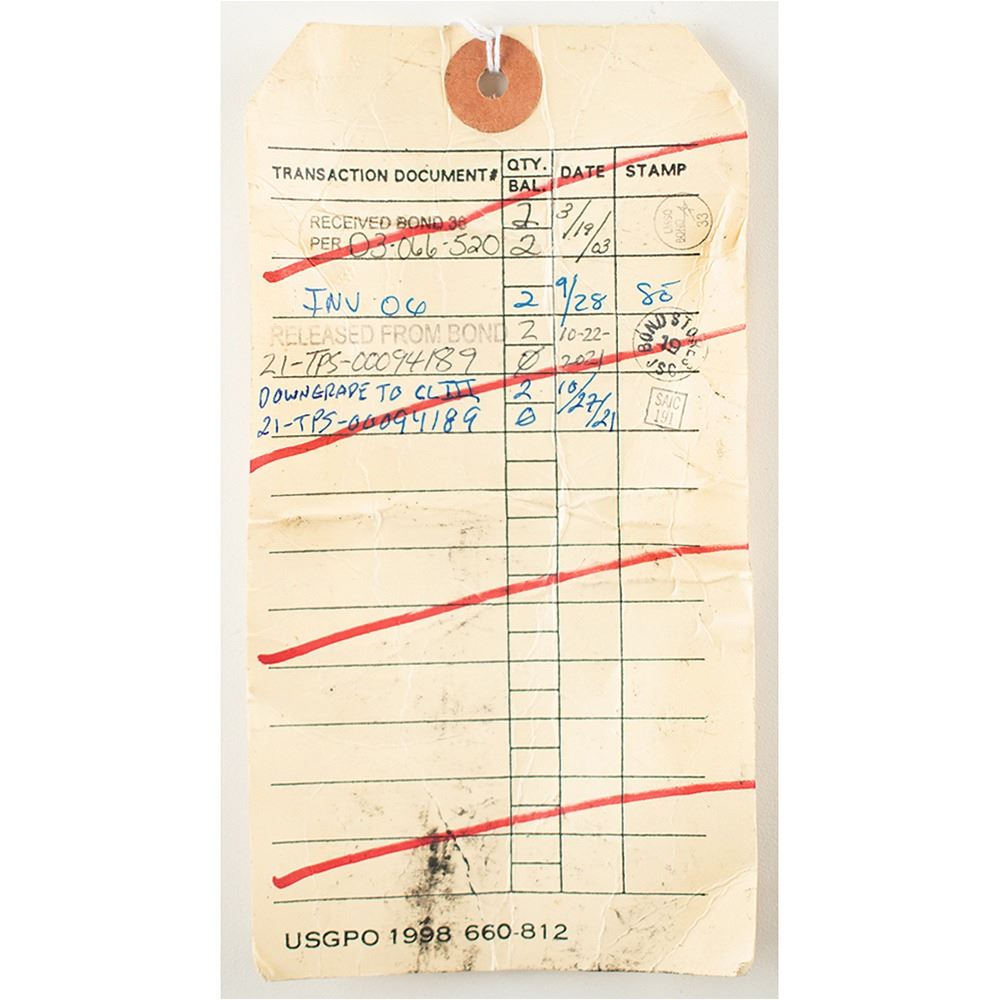 TRANSACTION DOCUMENT# QTY. BAL. DATE STAMP
RECEIVED BOND 36 2 3/19/03
PER 03-066-520 2
33
INV 06 2 9/28 85
RELEASED FROM BOND 2 10-22-
21-TPS-00094189 Ø 2021
BOND STORES 19 JSC
DOWNGRADE TO CL III 2 10/27/21
21-TPS-00094189 Ø
SAIC
191
USGPO 1998 660-812